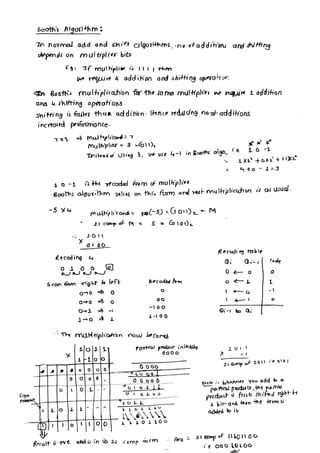 Booth's Algorithm :
In normal add and shift algorithms, no of addition and shifting
depends on multiplier bits
Eg: If multiplier is 1111 then
we require 4 addition and shifting operation
In Booth's multiplication for the same multiplier we require 1 addition
and 4 shifting operations.
Shifting is faster than addition. Hence reducing no of additions
increased performance.
7 × 3 → Multiplicand = 7
Multiplier = 3 → (011)2
Instead of using 3, we use 4-1 in Booths algo, i.e 1 0 -1
= 4 + 0 - 1 = 3
1 0 -1 is the recoded form of multiplier
Booths algorithm relies on this form and rest multiplication is as usual.
-5 × 4
Multiplicand = (-5) = (1011)2 ← M
2's comp of M = 5 = (0101)2
1011
× 0100
Recoding 4
0 1 0 0 0
Scan from right to left
0→0 ⇒ 0
0→0 ⇒ 0
0→1 ⇒ -1
1→0 ⇒ 1
Recoded form
0
00
-100
1-100
Recoding table
Qi Qi-1 Code
0 ← 0 0
0 ← 1 1
1 ← 0 -1
1 ← 1 0
Qi-1 to Qi
The multiplication now becomes
1 0 1 1
× 1 -1 0 0
partial product initially
0000
1011
× -1
2's comp of 1011 is 0101
Note :- Whenever you add to a
partial product, the partial
product is first shifted right by
1 bit and then the term is
added to it
Sign
Result is -ve and is in its 2's comp form
Ans = 2's comp of 11101100